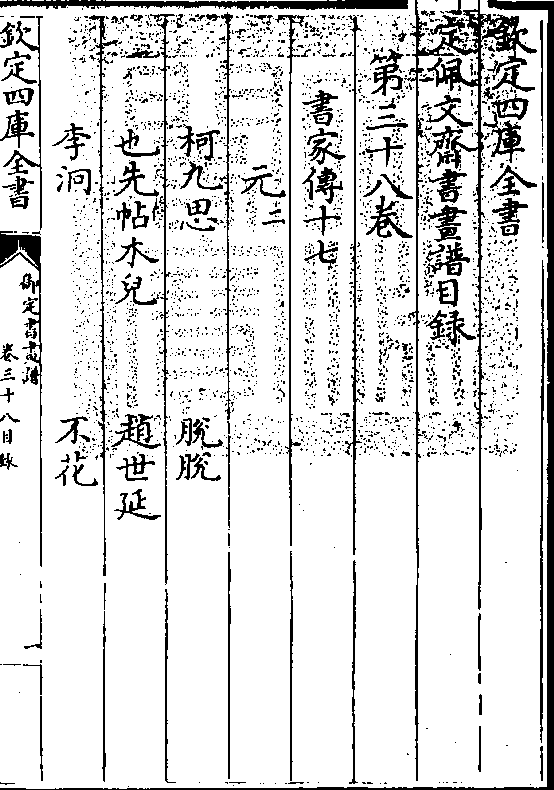 欽定四庫全書
定佩文齋書畫譜目録
第三十八卷
書家傳十七
元二
柯九思 脫脫
也先帖木兒 趙世延
李泂 不花
欽定四庫全書
御定書畫譜
卷三十八目録
一